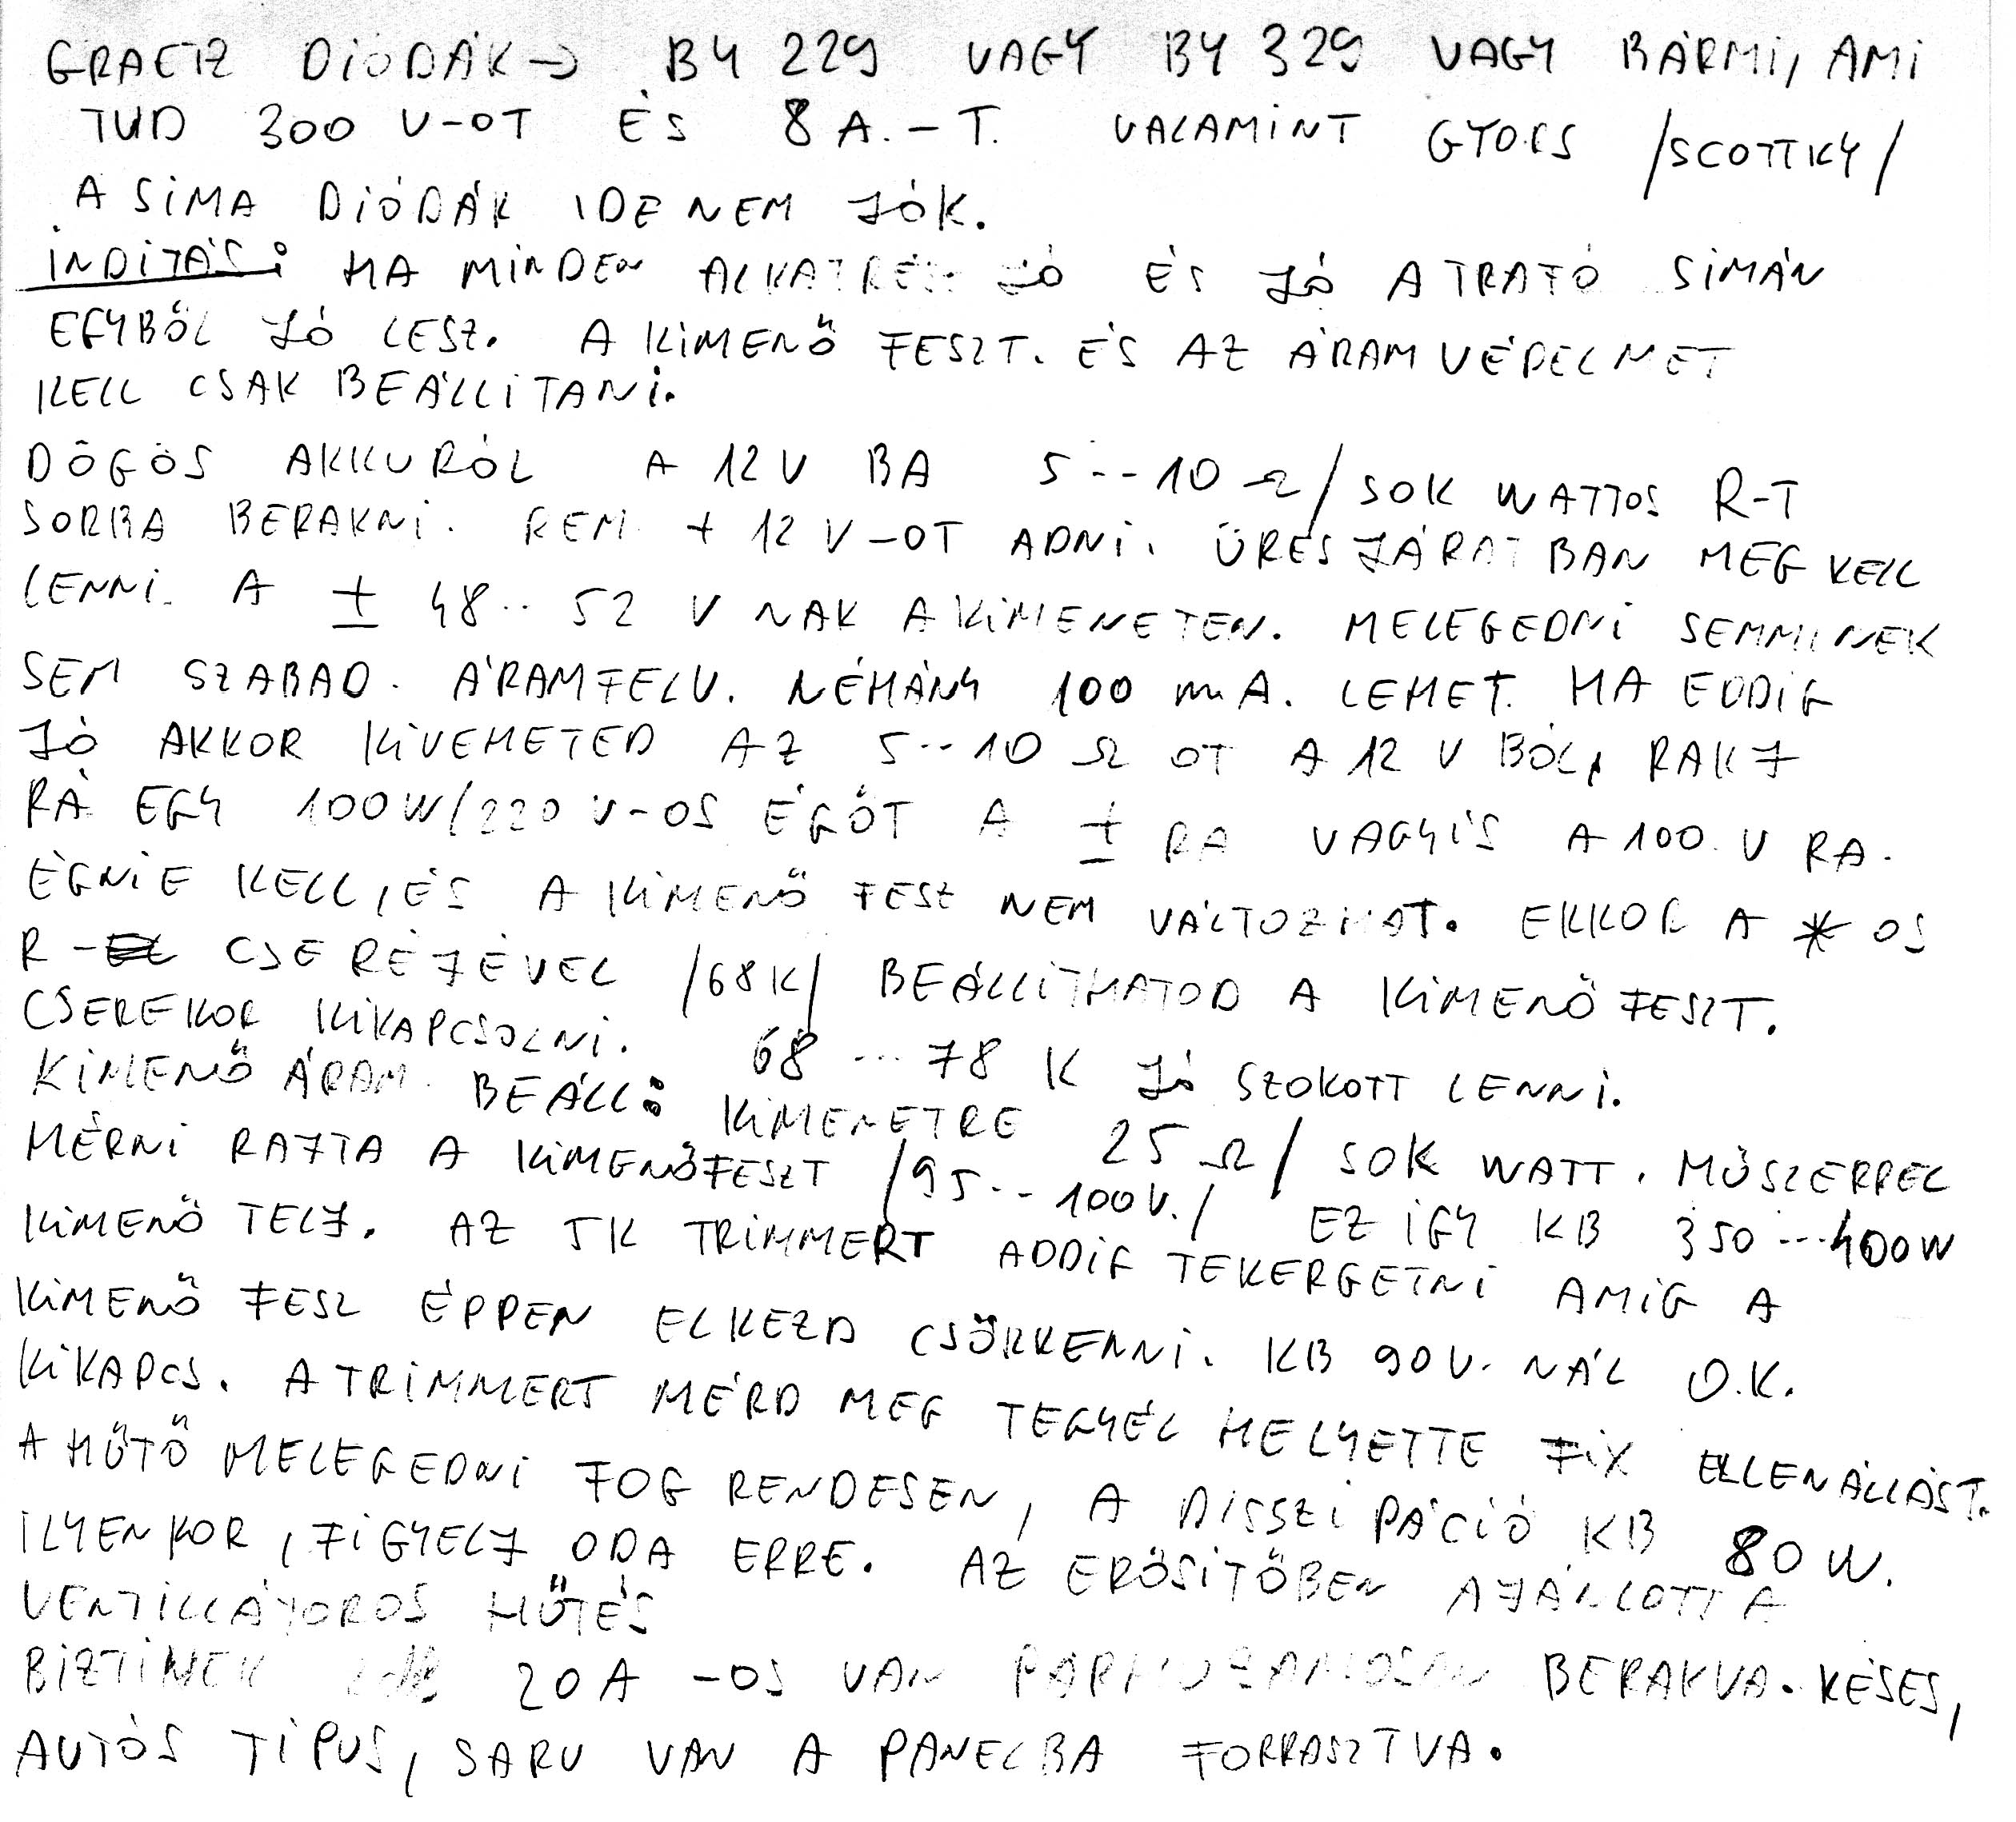 GRAETZ DIÓDÁK → BY 229 VAGY BY 329 VAGY BÁRMI, AMI
TUD 300 V-OT ÉS 8 A.-T. VALAMINT GYORS /SCOTTKY/
A SIMA DIÓDÁK IDE NEM JÓK.
INDITÁS: HA MINDEN ALKATRÉSZ JÓ ÉS JÓ A TRAFÓ SIMÁN
EGYBŐL JÓ LESZ. A KIMENŐ FESZT. ÉS AZ ÁRAMVÉDELMET
KELL CSAK BEÁLLITANI.
DÖGÖS AKKURÓL A 12 V BA 5--10 Ω/ SOK WATTOS R-T
SORBA BERAKNI. REM + 12 V-OT ADNI. ÜRESJÁRATBAN MEG KELL
LENNI A ± 48.. 52 V NAK A KIMENETEN. MELEGEDNI SEMMINEK
SEM SZABAD. ÁRAMFELV. NÉHÁNY 100 mA. LEHET. HA EDDIG
JÓ AKKOR KIVEHETED AZ 5--10 Ω OT A 12 V BÓL, RAKJ
RÁ EGY 100W/220 V-OS ÉGŐT A ± RA VAGYIS A 100 V RA.
ÉGNIE KELL, ÉS A KIMENŐ FESZ NEM VÁLTOZHAT. EKKOR A * OS
R- CSERÉJÉVEL /68K/ BEÁLLITHATOD A KIMENŐ FESZT.
CSEREKOR KIKAPCSOLNI. 68 ... 78 K JÓ SZOKOTT LENNI.
KIMENŐ ÁRAM BEÁLL: KIMENETRE 25 Ω/ SOK WATT. MŰSZERREL
MÉRNI RAJTA A KIMENŐFESZT /95--100V./ EZ IGY KB 350---400W
KIMENŐ TELJ. AZ 5K TRIMMERT ADDIG TEKERGETNI AMIG A
KIMENŐ FESZ ÉPPEN ELKEZD CSÖKKENNI. KB 90V. NÁL O.K.
KIKAPCS. A TRIMMERT MÉRD MEG TEGYÉL HELYETTE FIX ELLENÁLLÁST.
A HŰTŐ MELEGEDNI FOG RENDESEN, A DISSZIPÁCIÓ KB 80 W.
ILYENKOR, FIGYELJ ODA ERRE. AZ ERŐSITŐBEN AJÁNLOTT A
VENTILLÁTOROS HŰTÉS
BIZTINEK 20 A -OS VAN PÁRHUZAMOSAN BERAKVA. KÉSES,
AUTÓS TIPUS, SARU VAN A PANELBA FORRASZTVA.